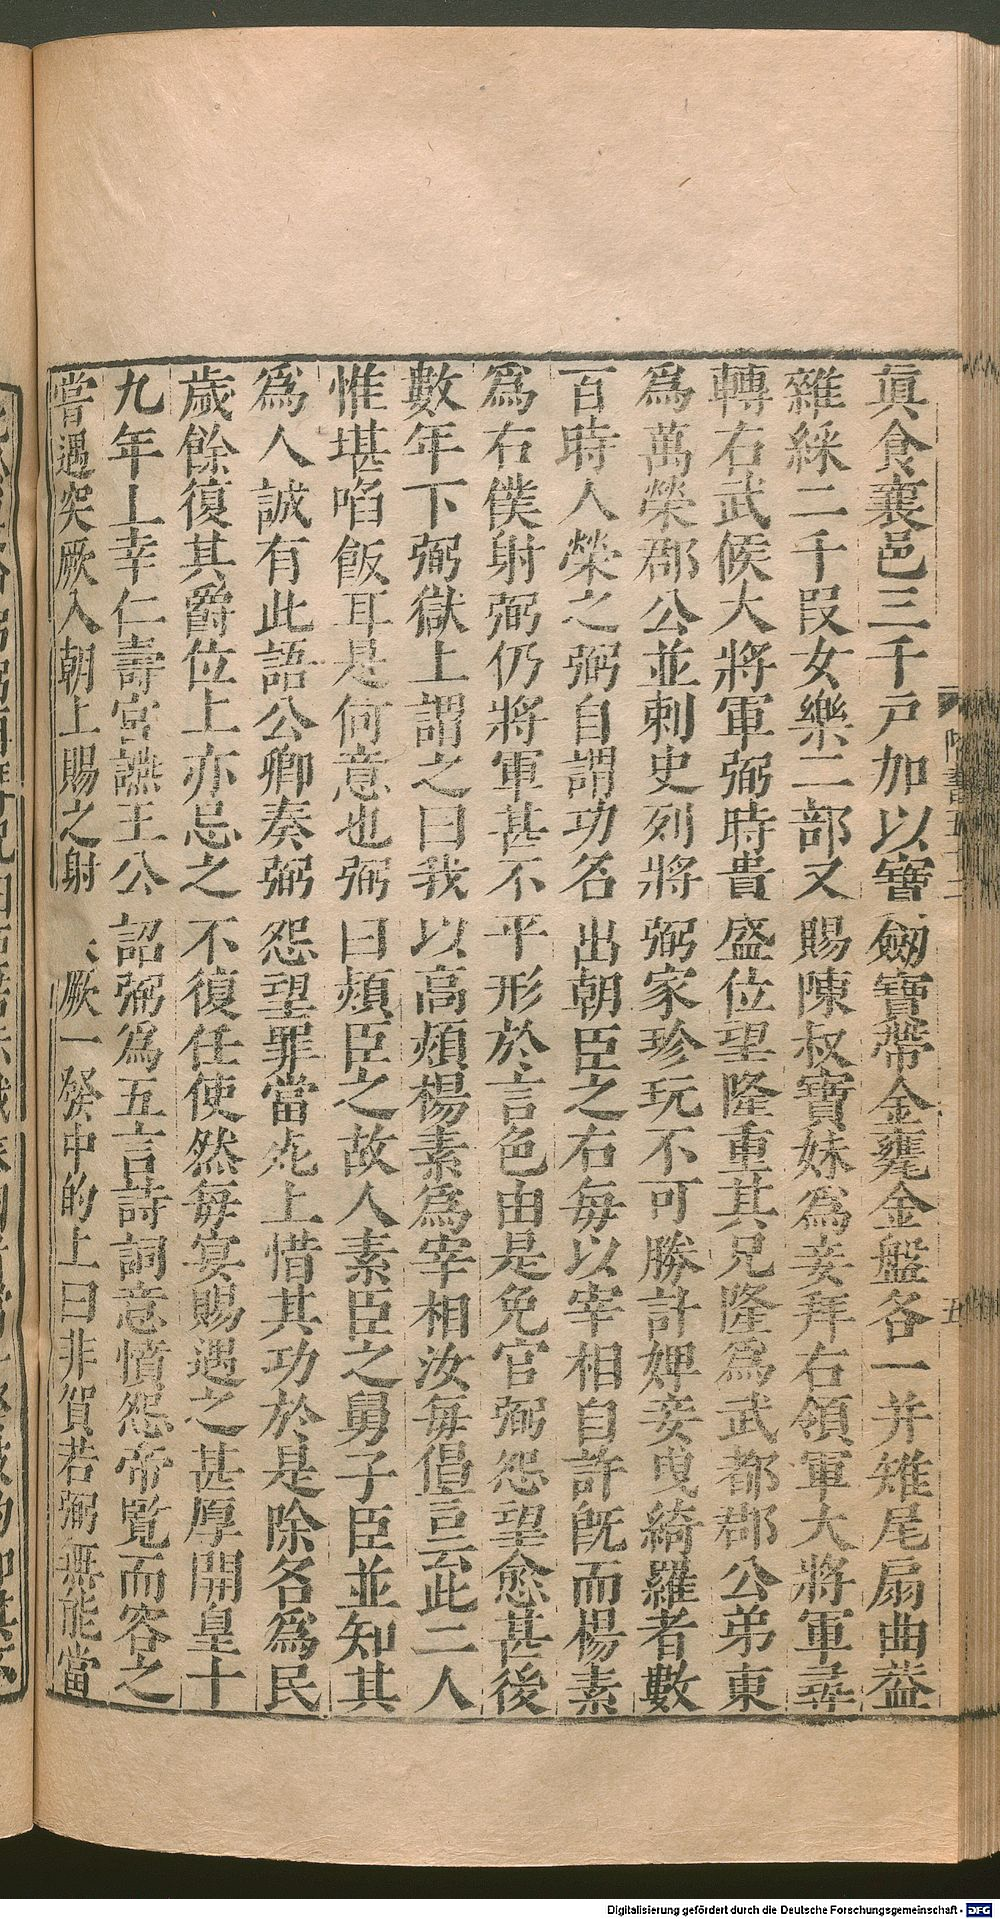 眞食襄邑三千戸加以寶劒寶帶金甕金盤各一并雉尾扇曲葢
雜綵二千段女樂二部又賜陳叔寶妹爲妾拜右領軍大將軍尋
轉右武候大將軍弼時貴盛位望隆重其兄隆爲武都郡公弟東
爲萬榮郡公並刺史列將弼家珍玩不可勝計婢妾曳綺羅者數
百時人榮之弼自謂功名出朝臣之右毎以宰相自許旣而楊素
爲右僕射弼仍將軍甚不平形於言色由是免官弼怨望愈甚後
數年下弼獄上謂之曰我以高熲楊素爲宰相汝毎倡言此二人
惟堪啗飯耳是何意也弼曰熲臣之故人素臣之舅子臣並知其
爲人誠有此語公卿奏弼怨望罪當死上惜其功於是除名爲民
歲餘復其爵位上亦忌之不復任使然毎宴賜遇之甚厚開皇十
九年上幸仁壽宮讌王公詔弼爲五言詩詞意憤怨帝覧而容之
嘗遇突厥入朝上賜之射厥一發中的上曰非賀若弼無能當
五
Digitalisierung gefördert durch die Deutsche Forschungsgemeinschaft - DFG